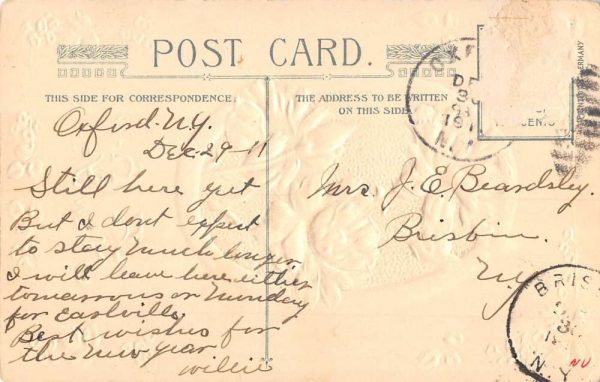 POST CARD.
THIS SIDE FOR CORRESPONDENCE.
THE ADDRESS TO BE WRITTEN
ON THIS SIDE
GERMANY
CENTS
N.Y.
Oxford N.Y.
Dec 29-11
Still here yet
But I dont expect
to stay much longer
I will leave here either
tomorrow or Monday
for Eastville
Best wishes for
the New Year
Willie
Mrs. J. E. Beardsley.
Brisbin.
N.Y.
BRIS
N.Y.
NU